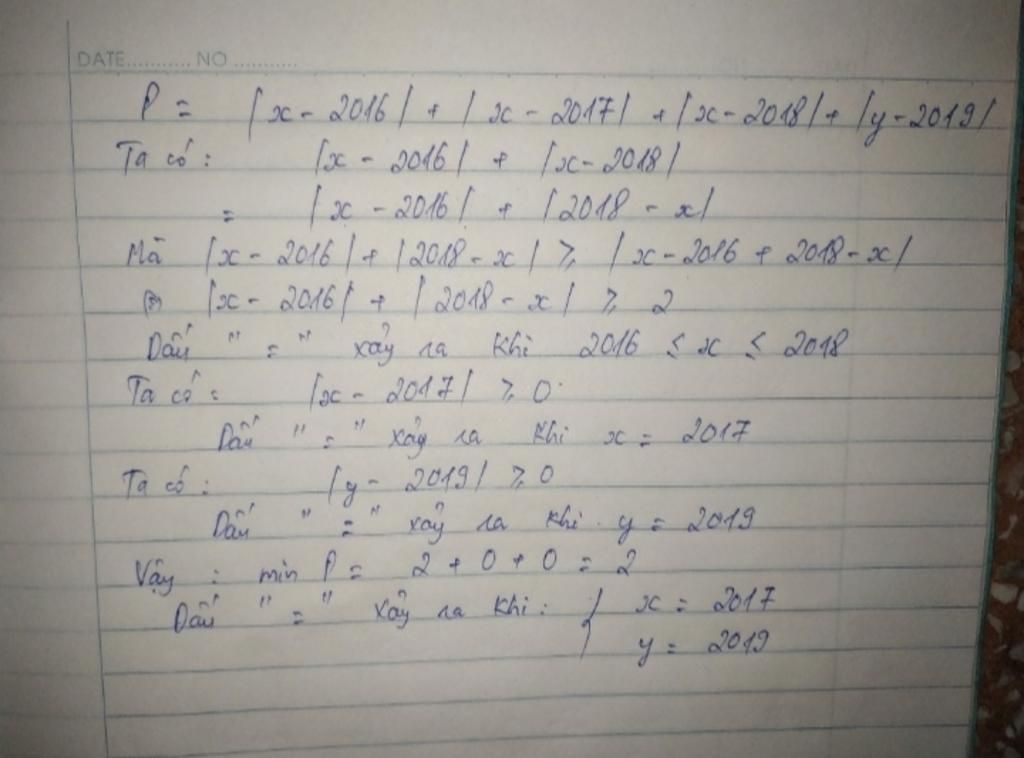 DATE........... NO ...........
P = |x - 2016| + |x - 2017| + |x - 2018| + |y - 2019|
Ta có : |x - 2016| + |x - 2018|
= |x - 2016| + |2018 - x|
Mà |x - 2016| + |2018 - x| ⩾ |x - 2016 + 2018 - x|
|x - 2016| + |2018 - x| ⩾ 2
Dấu " = " xảy ra khi 2016 ≤ x ≤ 2018
Ta có : |x - 2017| ⩾ 0
Dấu " = " xảy ra khi x = 2017
Ta có : |y - 2019| ⩾ 0
Dấu " = " xảy ra khi y = 2019
Vậy : min P = 2 + 0 + 0 = 2
Dấu " = " xảy ra khi : { x = 2017
y = 2019